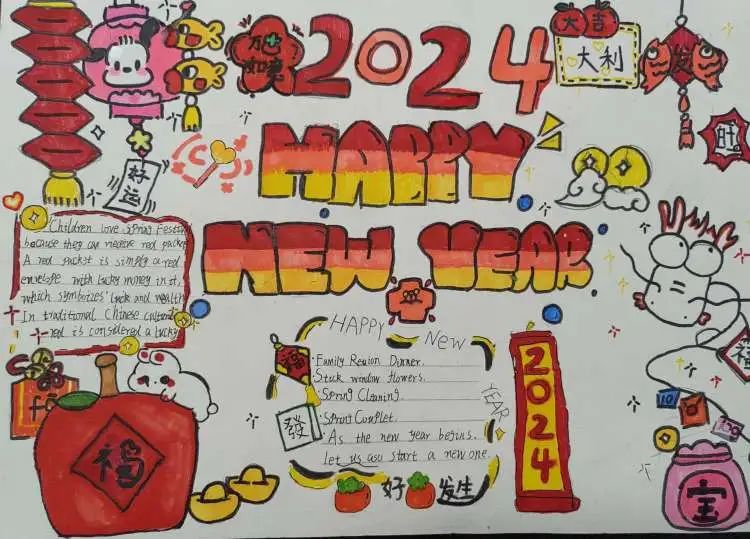 2024
万事
如意
大吉
大利
发
旺
好运
HAPPY
NEW YEAR
Children love Spring Festiv
because they can receive red packe
A red packet is simply a red
envelope with lucky money in it,
which symbolizes luck and wealth
In traditional Chinese cultur
red is considered a lucky
福
福
HAPPY New
YEAR
福
發
·Family Reation Dinner.
·Stuck window flowers.
·Spring Cleaning
·Spring Complet.
·As the new year begins.
let us also start a new one.
好 发生
2024
福
10
宝